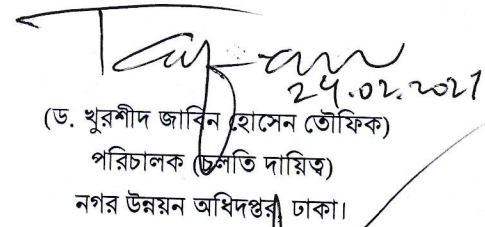 24.02.2021
(ড. খুরশীদ জাবিন হোসেন তৌফিক)
পরিচালক (চলতি দায়িত্ব)
নগর উন্নয়ন অধিদপ্তর, ঢাকা।